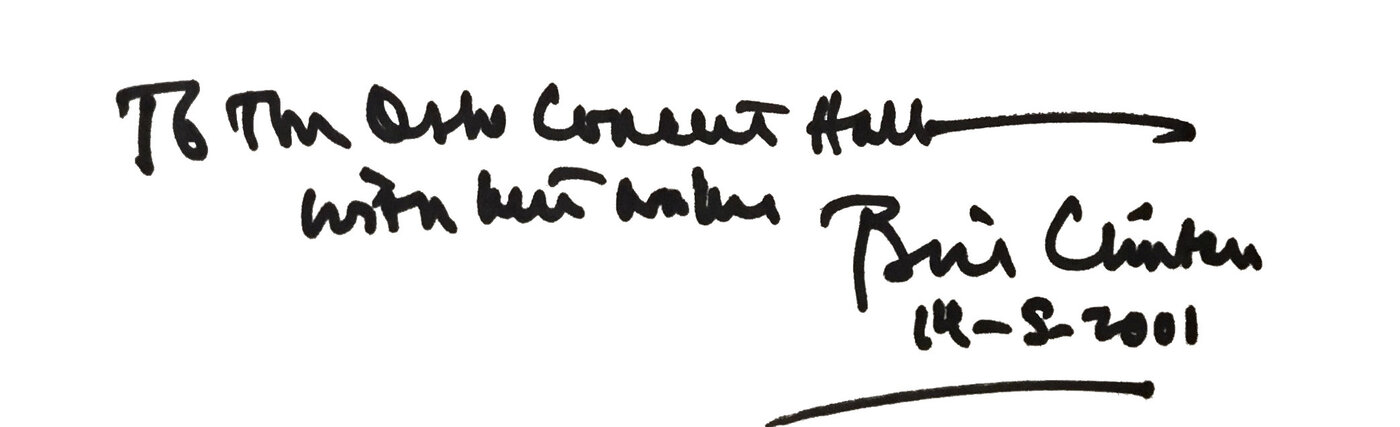 To The Oslo Concert Hall
with best wishes
Bill Clinton
14-5-2001